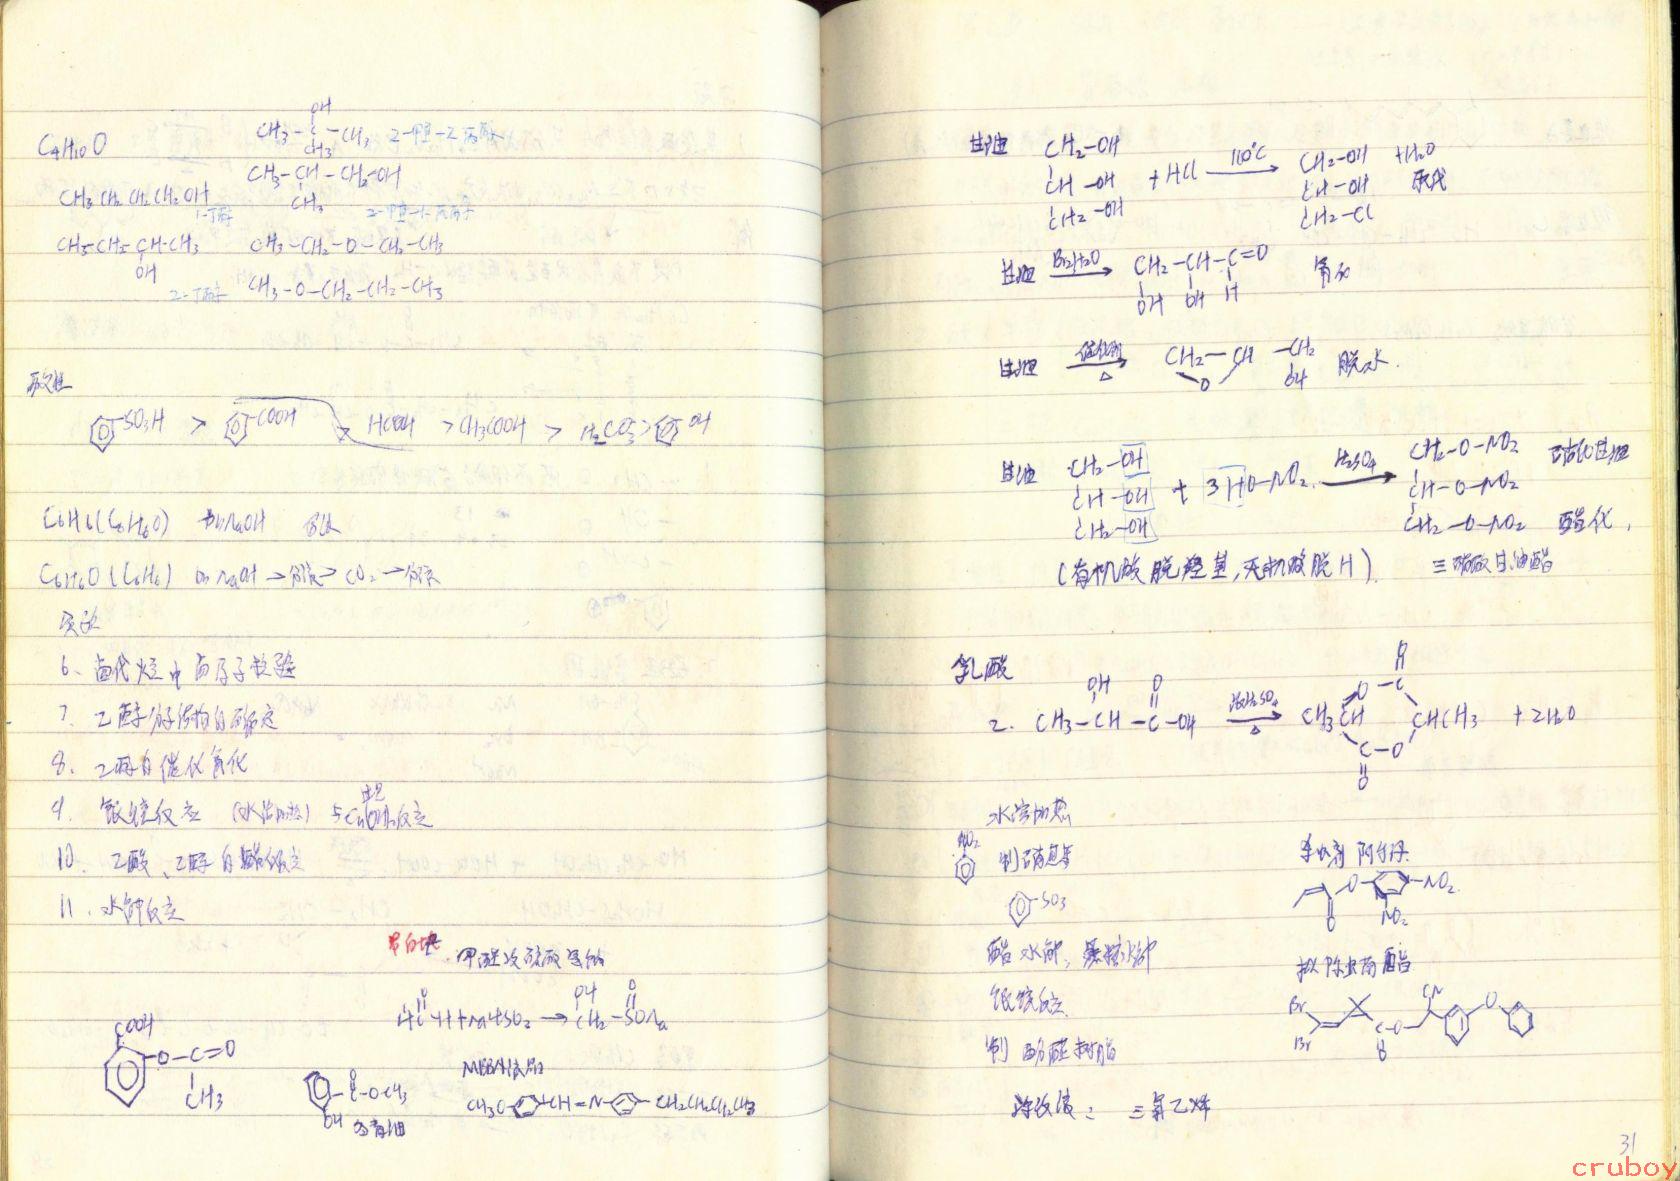 C4H10O
OH
CH3-C-CH3 2-甲基-2-丙醇
CH3
CH3-CH-CH2-OH
CH3 2-甲基-1-丙醇
CH3CH2CH2CH2OH
1-丁醇
CH3-CH2-CH-CH3
OH
2-丁醇
CH3-CH2-O-CH2-CH3
CH3-O-CH2-CH2-CH3
酸性
SO3H > COOH > HCOOH > CH3COOH > H2CO3 > OH
C6H6(C6H6O) 加NaOH 分液
C6H6O(C6H6) 加NaOH→分液→CO2→分液
实验
6、卤代烃中卤原子检验
7、乙醇分子结构的确定
8、乙醇的催化氧化
9、银镜反应 (水浴加热) 与Cu(OH)2反应
10、乙酸、乙醇的酯化反应
11、水解反应
吊白块 甲醛次硫酸氢钠
O OH O
HC-H+NaHSO2→CH2-SONa
COOH
O-C=O
CH3
O
C-O-CH3
OH 冬青油
MBBA液晶
CH3O- -CH=N- -CH2CH2CH2CH3
甘油 CH2-OH CH-OH CH2-OH +HCl 110℃ CH2-OH CH-OH CH2-Cl +H2O 取代
甘油 Br2/H2O CH2-CH-C=O 氧化
OH OH H
甘油 催化剂 △ CH2-CH-CH2 脱水
O OH
甘油 CH2-OH CH-OH CH2-OH + 3HO-NO2 H2SO4 CH2-O-NO2 CH-O-NO2 CH2-O-NO2 硝化甘油 酯化
(有机酸脱羟基,无机酸脱H) 三硝酸甘油酯
乳酸
OH O
2. CH3-CH-C-OH 浓H2SO4 △ CH3CH O-C CHCH3 C-O +2H2O
水浴加热
NO2 制硝基苯
SO3
酯水解,蔗糖水解
银镜反应
制酚醛树脂
涂改液: 三氯乙烯
O NO2
O NO2
拟除虫菊酯
Br CN O
Br C-O
O
31
cruboy